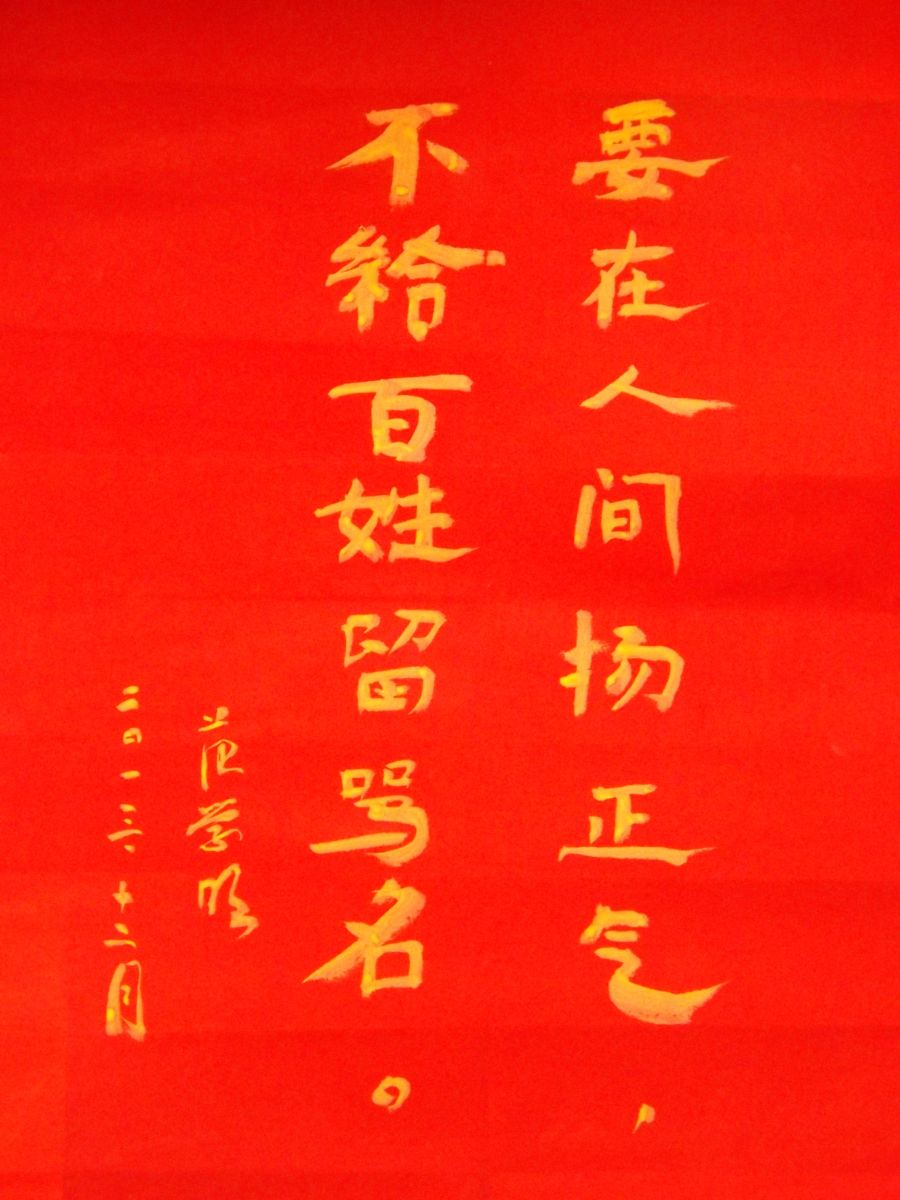 要在人间扬正气，
不给百姓留骂名。
范学明
二0一三、十二月